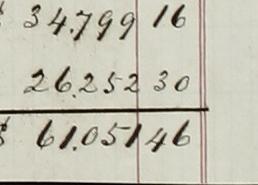 $ 34.799 16
26.252 30
$ 61.051 46